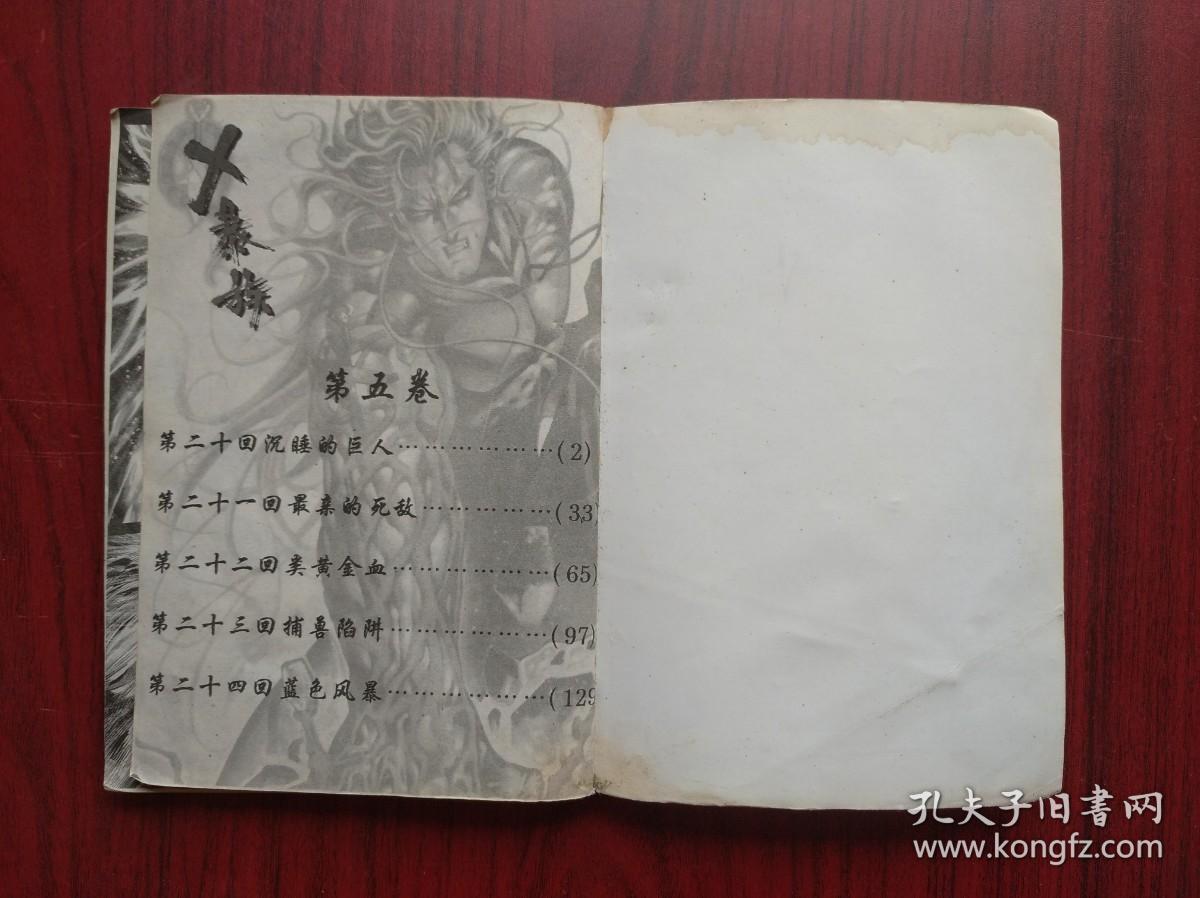 第五卷
第二十回沉睡的巨人………………(2)
第二十一回最亲的死敌……………(33)
第二十二回类黄金血………………(65)
第二十三回捕兽陷阱………………(97)
第二十四回蓝色风暴………………(129
孔夫子旧書网
www.kongfz.com